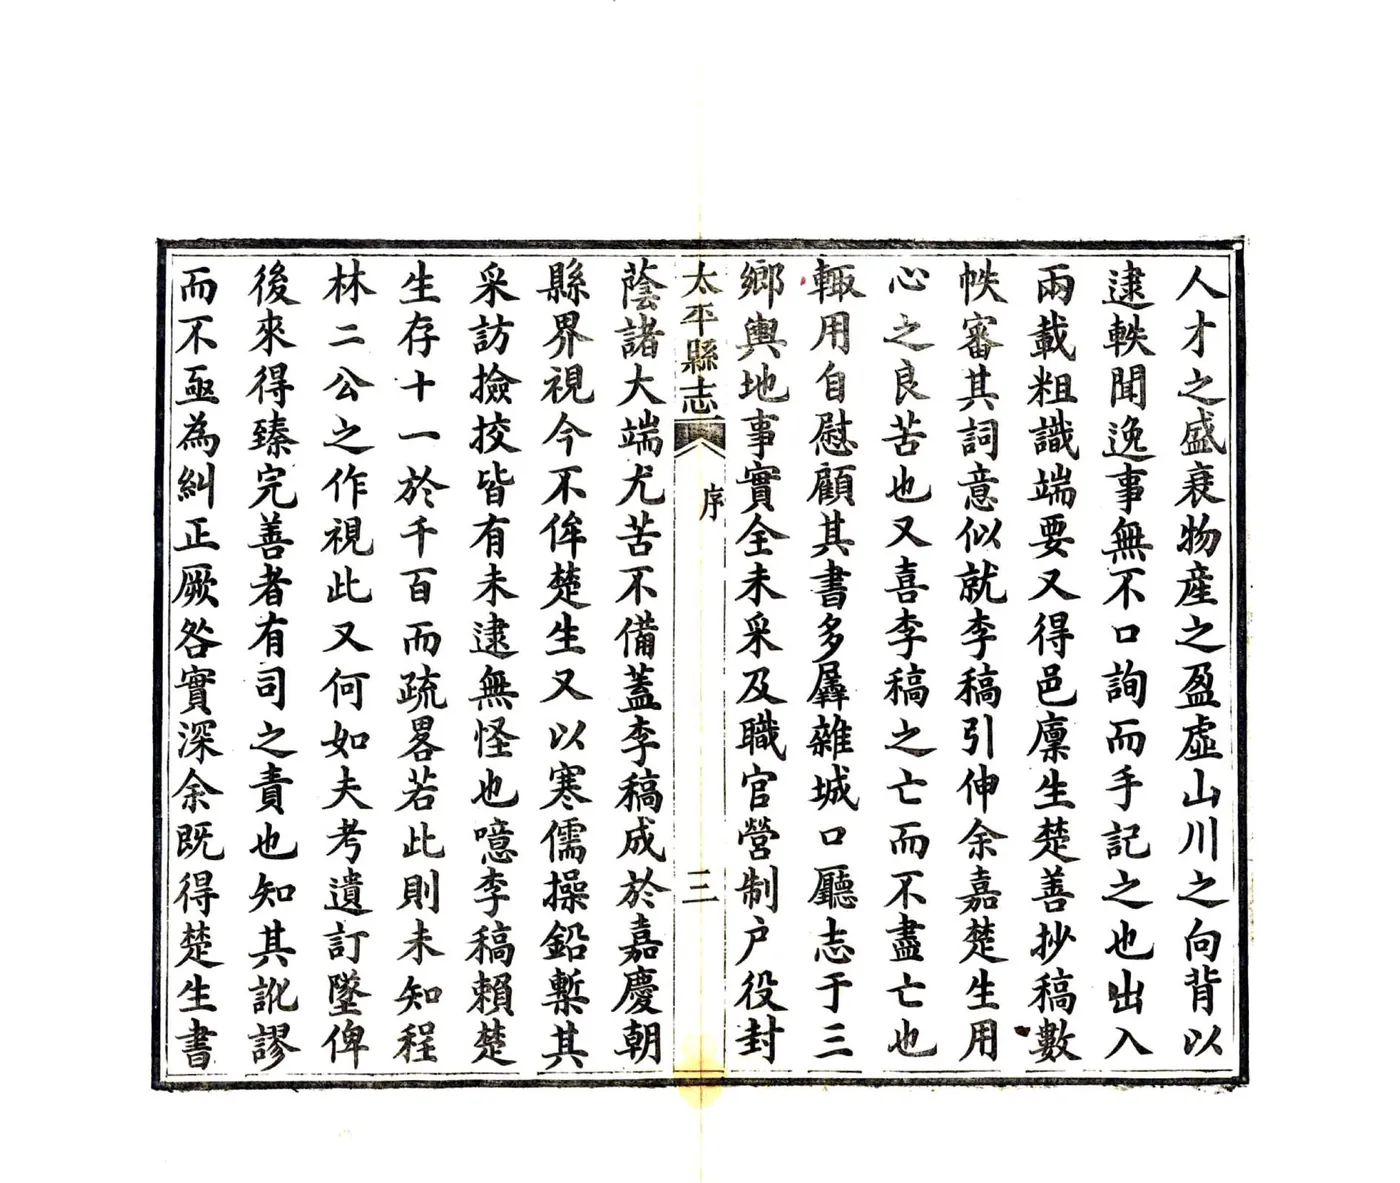 人才之盛衰物產之盈虛山川之向背以
逮軼聞逸事無不口詢而手記之也出入
兩載粗識端要又得邑廩生楚善抄稿數
帙審其詞意似就李稿引伸余嘉楚生用
心之良苦也又喜李稿之亡而不盡亡也
輒用自慰顧其書多羼雜城口廳志于三
鄉輿地事實全未采及職官營制戶役封
太平縣志
序
三
蔭諸大端尤苦不備蓋李稿成於嘉慶朝
縣界視今不侔楚生又以寒儒操鉛槧其
采訪撿挍皆有未逮無怪也噫李稿賴楚
生存十一於千百而疏畧若此則未知程
林二公之作視此又何如夫考遺訂墜俾
後來得臻完善者有司之責也知其訛謬
而不亟為糾正厥咎實深余既得楚生書